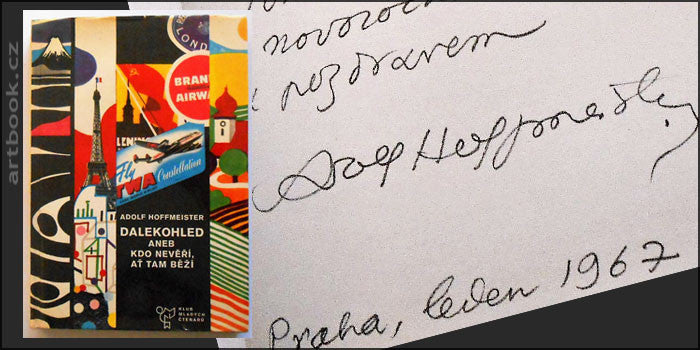 artbook.cz
LONDO
BRANI
AIRWA
LENING
Fly
TWA
Constellation
ADOLF HOFFMEISTER
DALEKOHLED
ANEB
KDO NEVĚŘÍ,
AŤ TAM BĚŽÍ
KLUB
MLADÝCH
ČTENÁŘŮ
novoroč
pozdravem
Adolf Hoffmeister
Praha, leden 1967